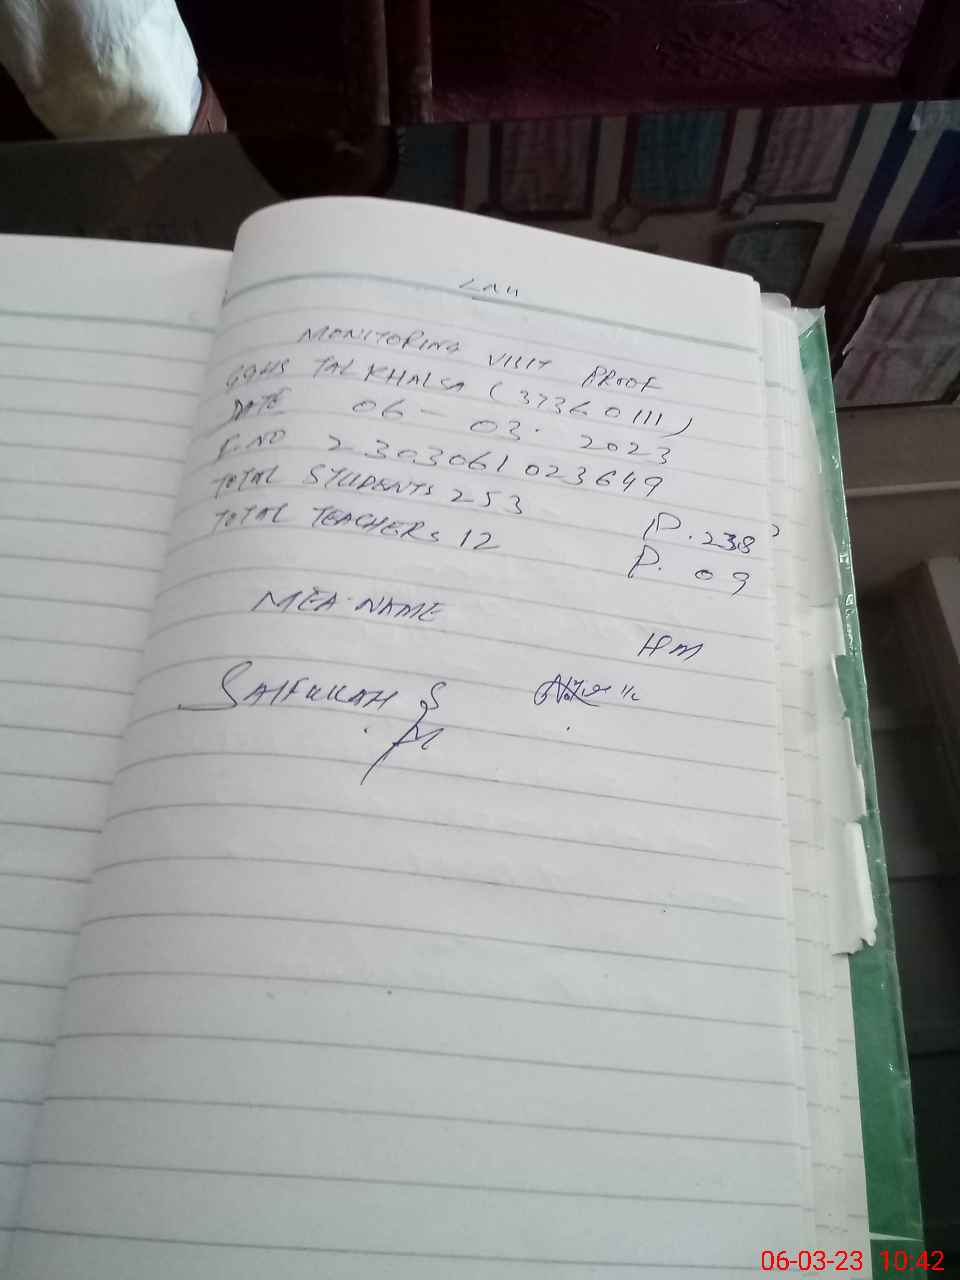 MONITORING VISIT PROOF
GGHS TAL KHALSA (37360111)
DATE 06-03.2023
F.NO 2303061023649
TOTAL STUDENTS 253 P.238
TOTAL TEACHERS 12 P. 09
MEA.NAME HM
SAIFULLAH S
06-03-23 10:42